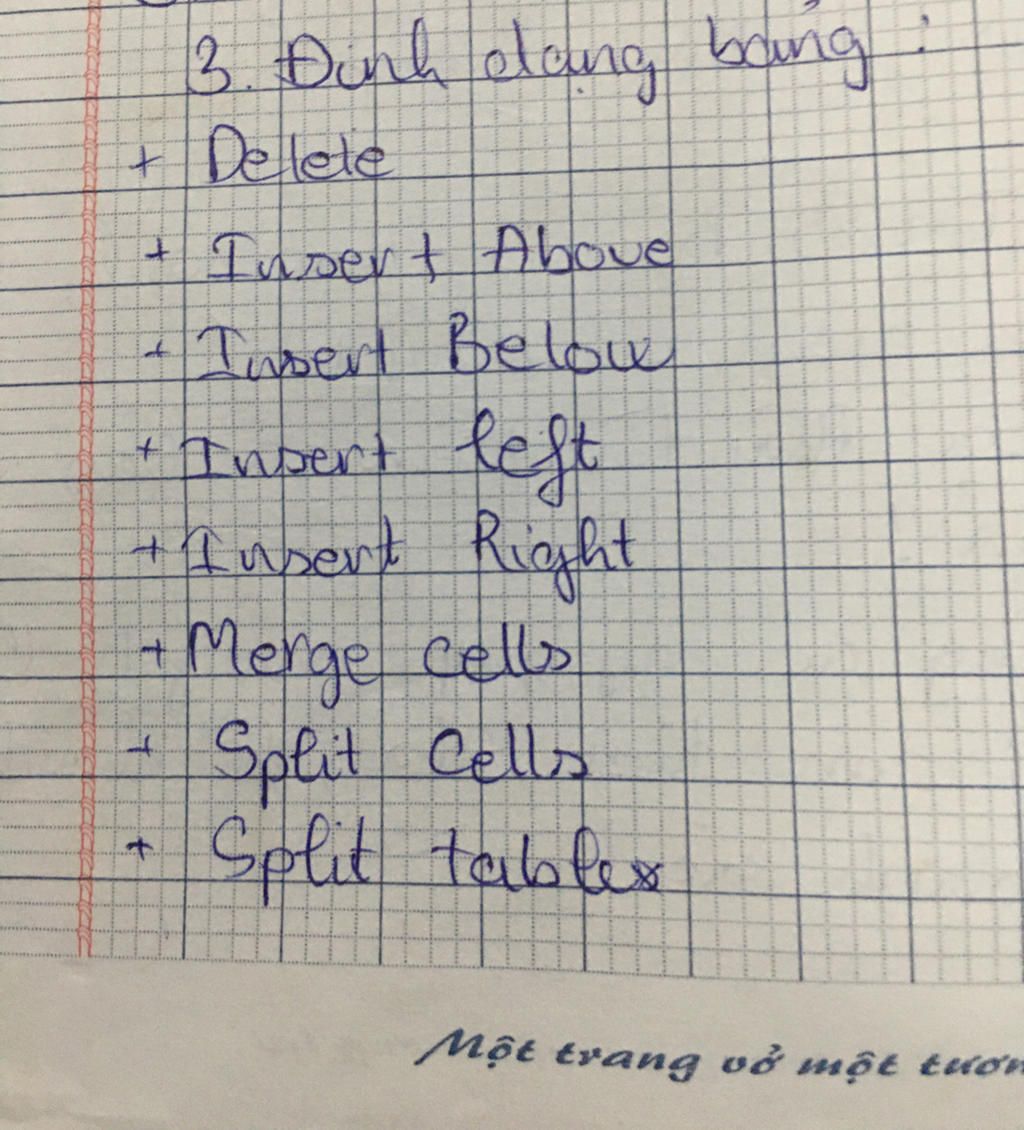 3. Định dạng bảng :
+ Delete
+ Insert Above
+ Insert Below
+ Insert left
+ Insert Right
+ Merge cells
+ Split Cells
+ Split
Một trang vở một tươn